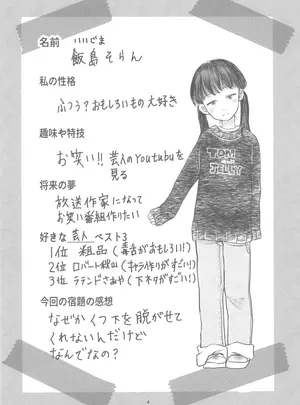 名前
いいじま
飯島そらん
私の性格
ふつう?おもしろいもの大好き
趣味や特技
お笑い!!芸人のYoutubuを
見る
将来の夢
放送作家になって
お笑い番組作りたい
好きな芸人ベスト3
1位 粗品(毒舌がおもしろい!)
2位 ロバート秋山(キャラ作りがすごい!)
3位 ラランドさあや(下ネタがすごい!)
今回の宿題の感想
なぜかくつ下を脱がせて
くれないんだけど
なんでなの?
TOM
JELLY
4